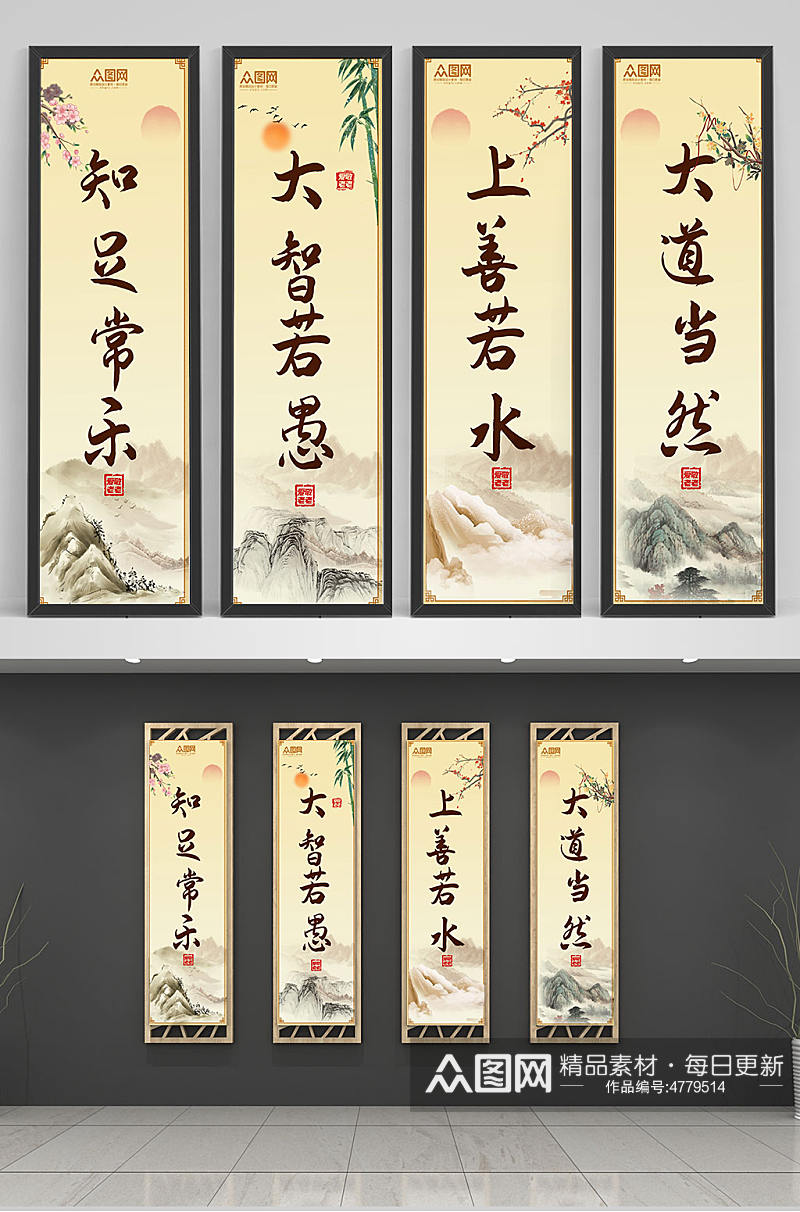 众图网
知足常乐
众图网
大智若愚
众图网
上善若水
众图网
大道当然
众图网
知足常乐
众图网
大智若愚
众图网
上善若水
众图网
大道当然
众图网
精品素材·每日更新
作品编号:4779514